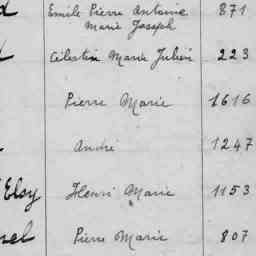 Emile Pierre Antoine 871
Marie Joseph
Célestin Marie Julien 223
Pierre Marie 1616
André 1247
Elsy Henri Marie 1153
Pierre Marie 807